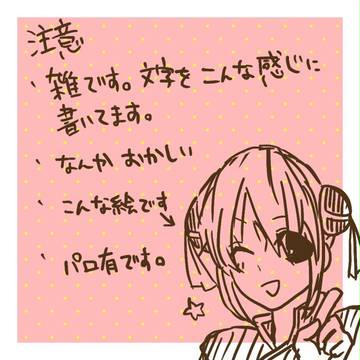 注意
、雑です。文字をこんな感じに
書いてます。
、なんか おかしい
、こんな絵です
、パロ有です。